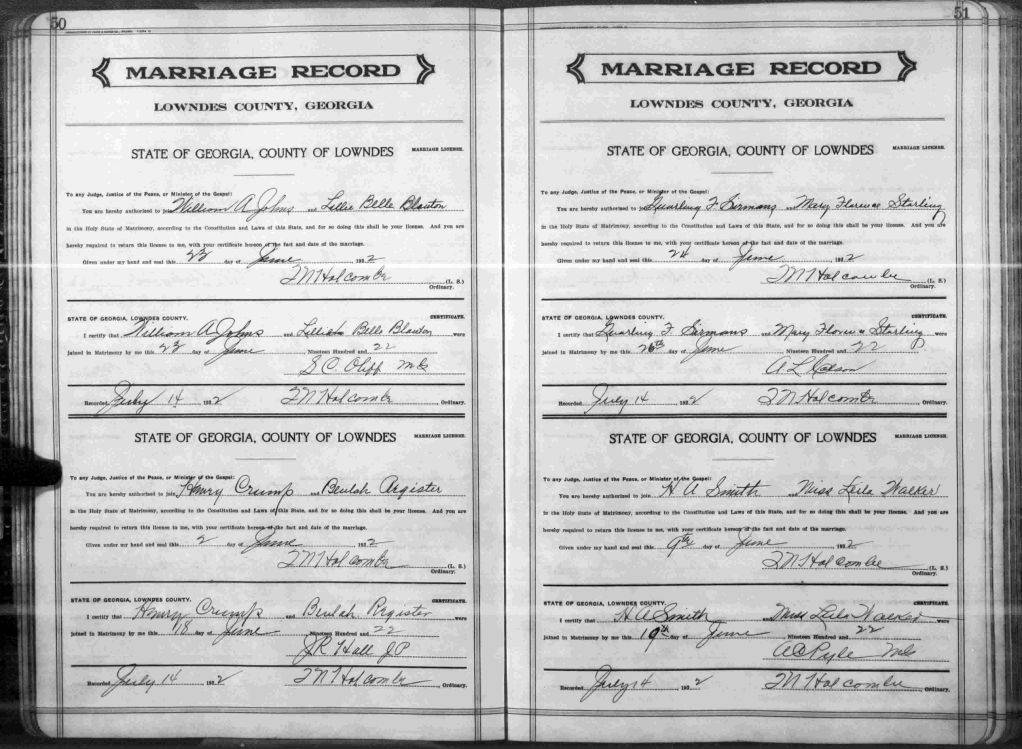 50
MARRIAGE RECORD
LOWNDES COUNTY, GEORGIA
STATE OF GEORGIA, COUNTY OF LOWNDES MARRIAGE LICENSE.
To any Judge, Justice of the Peace, or Minister of the Gospel:
You are hereby authorized to join William A Johns and Lillie Belle Blanton
in the Holy State of Matrimony, according to the Constitution and Laws of this State, and for so doing this shall be your license. And you are
hereby required to return this license to me, with your certificate hereon of the fact and date of the marriage.
Given under my hand and seal this 23 day of June 1922
T N Holcombe (L. S.)
Ordinary.
STATE OF GEORGIA, LOWNDES COUNTY. CERTIFICATE.
I certify that William A Johns and Belle Blanton were
joined in Matrimony by me this 23 day of June Nineteen Hundred and 22
S C Oliff MG
Recorded July 14, 1922 T N Holcombe Ordinary.
STATE OF GEORGIA, COUNTY OF LOWNDES MARRIAGE LICENSE.
To any Judge, Justice of the Peace, or Minister of the Gospel:
You are hereby authorized to join Henry Crump and Beulah Register
in the Holy State of Matrimony, according to the Constitution and Laws of this State, and for so doing this shall be your license. And you are
hereby required to return this license to me, with your certificate hereon of the fact and date of the marriage.
Given under my hand and seal this 2 day of June 1922
T N Holcombe (L. S.)
Ordinary.
STATE OF GEORGIA, LOWNDES COUNTY. CERTIFICATE.
I certify that Henry Crump and Beulah Register were
joined in Matrimony by me this 18 day of June Nineteen Hundred and 22
J R Hall J P
Recorded July 14, 1922 T N Holcombe, Ordinary.
51
MARRIAGE RECORD
LOWNDES COUNTY, GEORGIA
STATE OF GEORGIA, COUNTY OF LOWNDES MARRIAGE LICENSE.
To any Judge, Justice of the Peace, or Minister of the Gospel:
You are hereby authorized to join Quarling F Sirmans and Mary Florence Starling
in the Holy State of Matrimony, according to the Constitution and Laws of this State, and for so doing this shall be your license. And you are
hereby required to return this license to me, with your certificate hereon of the fact and date of the marriage.
Given under my hand and seal this 24 day of June 1922
T N Holcombe (L. S.)
Ordinary.
STATE OF GEORGIA, LOWNDES COUNTY. CERTIFICATE.
I certify that Quarling F Sirmans and Mary Florence Starling were
joined in Matrimony by me this 26th day of June Nineteen Hundred and 22
A L
Recorded July 14 1922 T N Holcombe Ordinary.
STATE OF GEORGIA, COUNTY OF LOWNDES MARRIAGE LICENSE.
To any Judge, Justice of the Peace, or Minister of the Gospel:
You are hereby authorized to join H A Smith and Miss Leila Walker
in the Holy State of Matrimony, according to the Constitution and Laws of this State, and for so doing this shall be your license. And you are
hereby required to return this license to me, with your certificate hereon of the fact and date of the marriage.
Given under my hand and seal this 9th day of June 1922
T N Holcombe (L. S.)
Ordinary.
STATE OF GEORGIA, LOWNDES COUNTY. CERTIFICATE.
I certify that H A Smith and Miss Leila Walker were
joined in Matrimony by me this 19th day of June Nineteen Hundred and 22
A C Pyle MG
Recorded July 14, 1922 T N Holcombe, Ordinary.